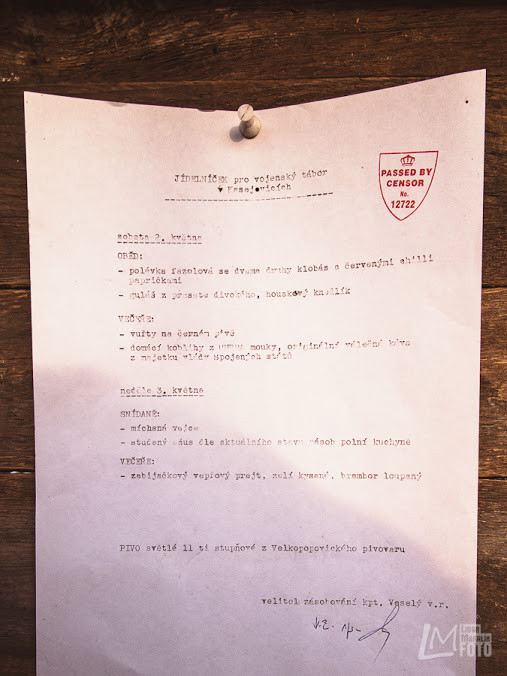 JÍDELNÍČEK pro vojenský tábor
v Kasejovicích
PASSED BY
CENSOR
No.
12722
sobota 2. května
OBĚD:
- polévka fazolová se dvema druhy klobás a červenými chilli
papričkami
- guláš z prasete divokého, houskový knedlík
VEČEŘE:
- vuřty na černém pivě
- domácí koblihy z mouky, originální válečná káva
z majetku vlády Spojených států
neděle 3. května
SNÍDANĚ:
- míchaná vejce
- studený nášus dle aktuálního stavu zásob polní kuchyně
VEČEŘE:
- zabijačkový vepřový prejt, zelí kysané, brambor loupaný
PIVO světlé 11 ti stupňové z Velkopopovického pivovaru
velitel zásobování kpt. Veselý v.r.
LM
FOTO